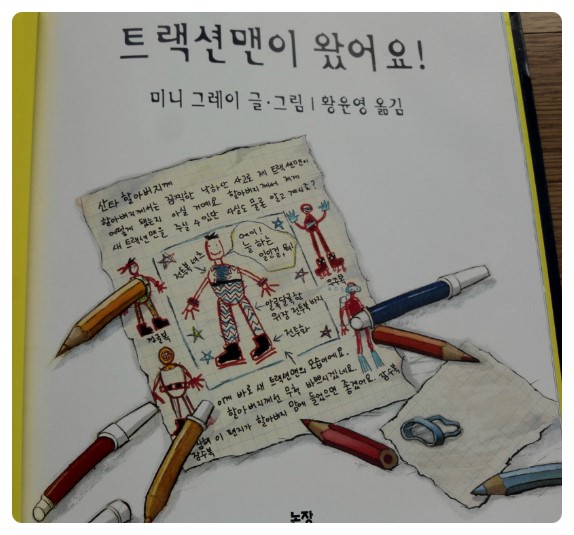 트랙션맨이 왔어요!
미니 그레이 글·그림 | 황윤영 옮김
산타 할아버지께
할아버지께서는 끔찍한 낙하산 사고로 제 트랙션맨이
어떻게 됐는지 아실 거예요. 할아버지께서 저에게
새 트랙션맨을 주실 수 있단 사실도 물론 알고 계시죠?
에이!
늘 하는
일인걸, 뭐!
전투복 셔츠
우주복
알록달록한
위장 전투복 바지
전투화
잠수복
이게 바로 새 트랙션맨의 모습이에요.
할아버지께선 무척 바쁘시겠네요.
이 편지가 할아버지 맘에 들었으면 좋겠어요.
잠수복
논장